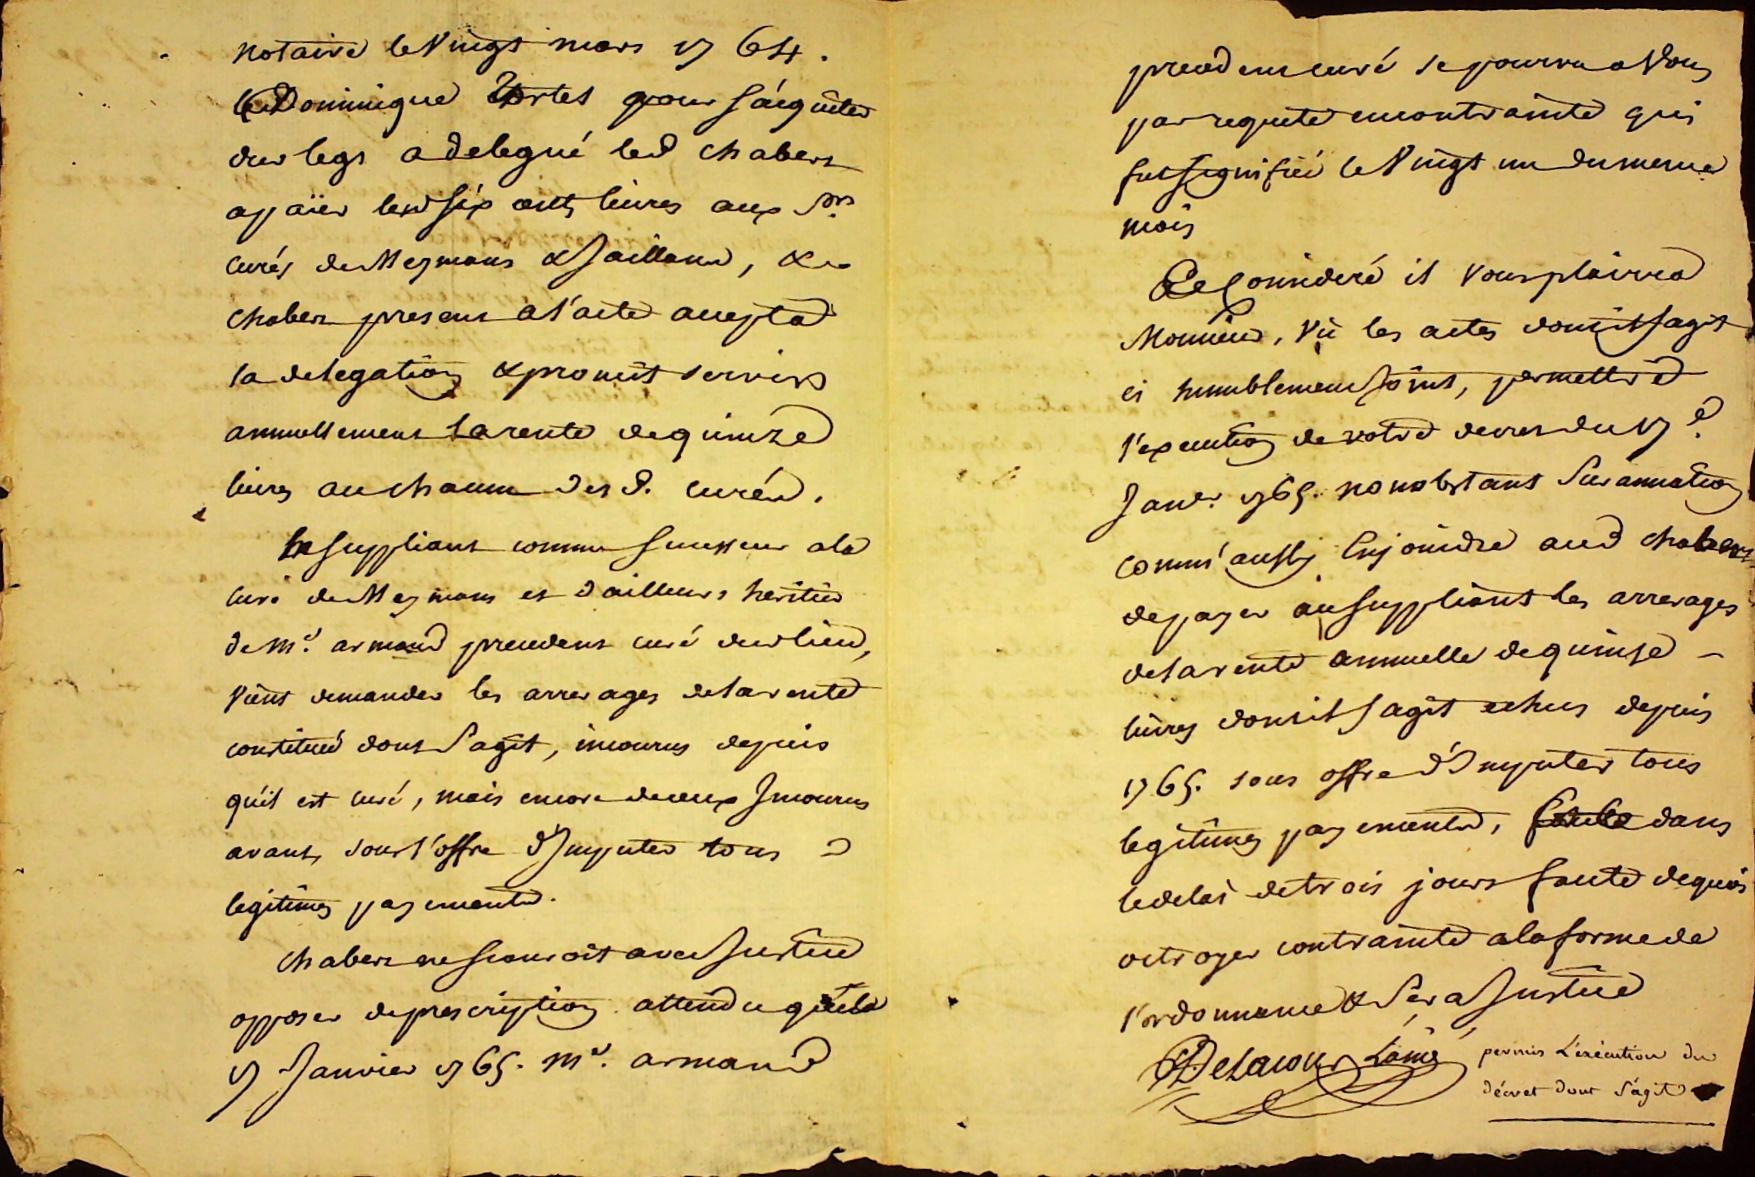 notaire le Vingt mars 1764.
led Dominique Tortel pour s'aiquiter
dud legs a delegué led chabert
a païer lesd six cents livres aux Srs
curés de Meymans & Jaillans, & le
chabert present a l'acte accepta
la delegation & promit servir
annuellement la rente de quinze
livres au chacun desd. curés.
le suppliant comme successeur a la
cure de Meymans et d'ailleurs heritier
de Me. armand precedent curé dud lieu,
Vient demander les arrerages de la rente
constituée dont s'agit, incourus depuis
qu'il est curé, mais encore de ceux Incourus
avant, sous l'offre d'Imputer tous
legitimes payements.
chabert ne scauroit avec Justice
opposer de prescription attendu que le
17 Janvier 1765. Me. armand
precedent curé se pourvu a Vous
par requete en contrainte qui
fut signifiée le Vingt un du meme
mois
Ce Consideré il Vous plairra
Monsieur, Vù les actes dont il s'agit
ci humblement joints, permettre
l'execution de votre decret du 17e
Janvr. 1765. nonobstant surannation
comm'aussy Enjoindre aud chabert
de payer au suppliant les arrerages
de la rente annuelle de quinse
livres dont il s'agit echus depuis
1765. sous offre d'Imputer tous
legitimes payements, dans
le delai de trois jours faute de quoi
octroyer contrainte a la forme de
l'ordonnance & sera Justice
Delacour L'ainé
permis L'exécution du
décret dont s'agit